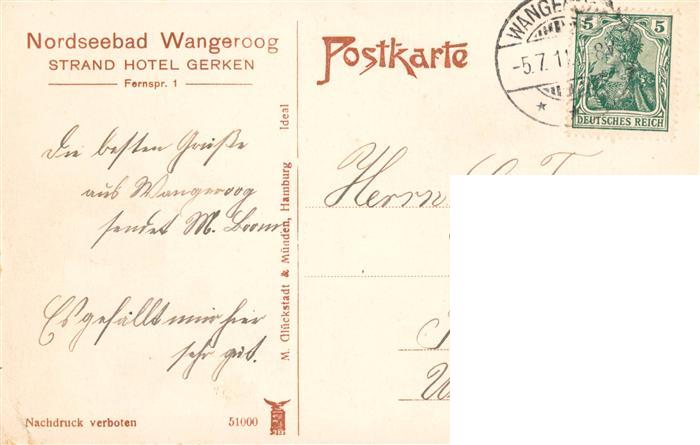 Nordseebad Wangeroog
STRAND HOTEL GERKEN
Fernspr. 1
Postkarte
WANGE
-5.7.11
5 5
DEUTSCHES REICH
Die besten Grüße
aus Wangeroog
sendet M.
Es gefällt mir hier
sehr gut.
M. Glückstadt & Münden, Hamburg Ideal
Herrn
Nachdruck verboten 51000